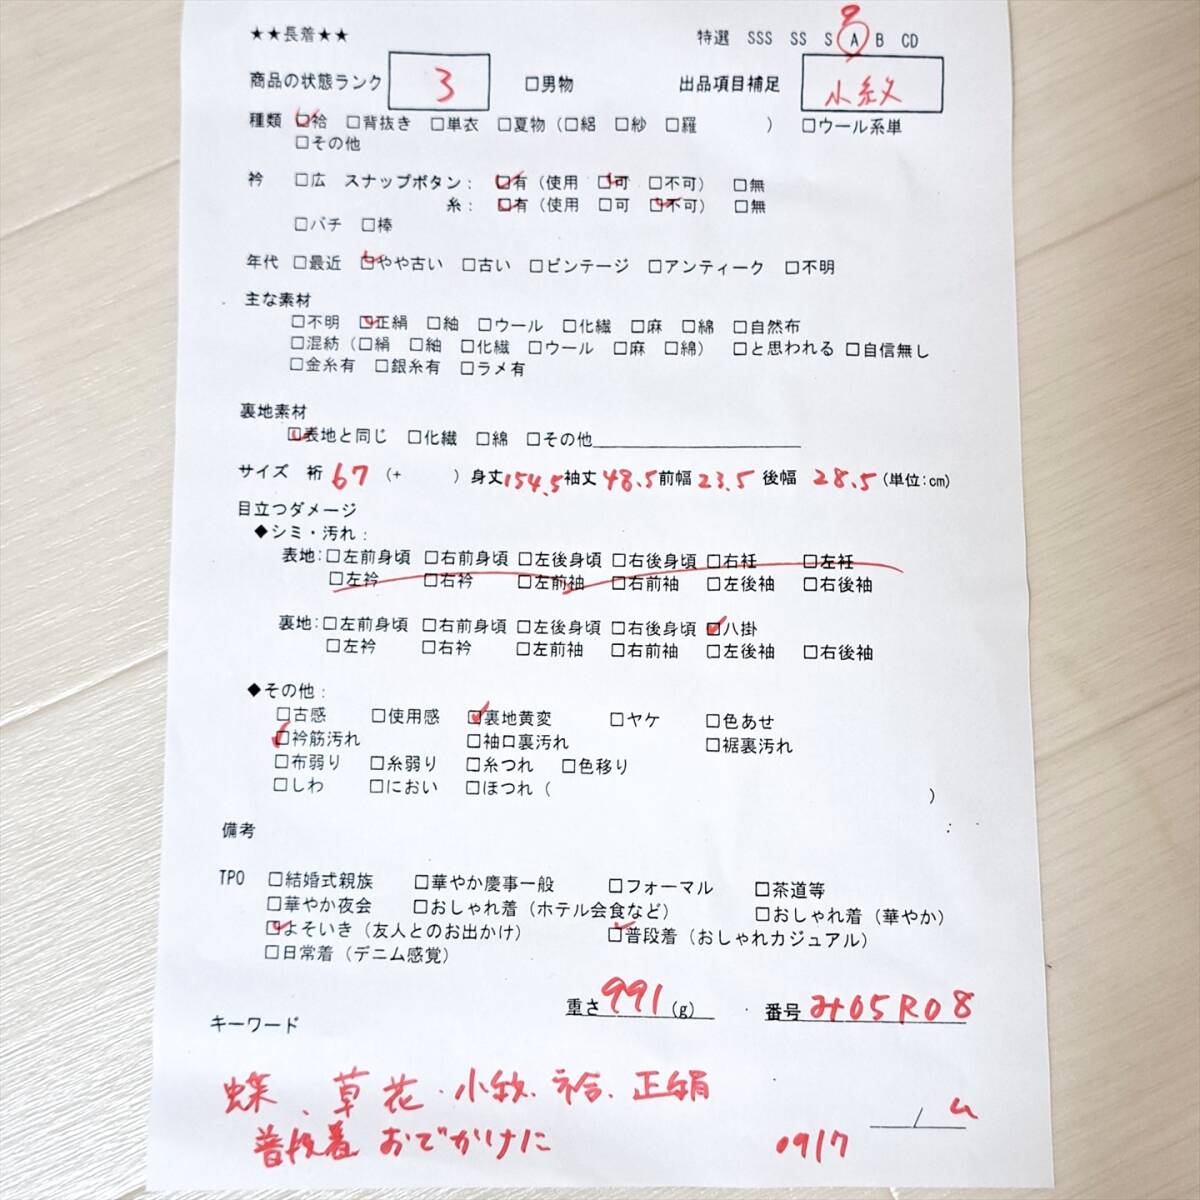 ★★長着★★ 特選 SSS SS S A B CD
商品の状態ランク 3 □男物 出品項目補足 小紋
種類 □袷 □背抜き □単衣 □夏物（□絽 □紗 □羅 ） □ウール系単
□その他
衿 □広 スナップボタン： □有（使用 □可 □不可） □無
糸： □有（使用 □可 □不可） □無
□バチ □棒
年代 □最近 □やや古い □古い □ビンテージ □アンティーク □不明
主な素材
□不明 □正絹 □紬 □ウール □化繊 □麻 □綿 □自然布
□混紡（□絹 □紬 □化繊 □ウール □麻 □綿） □と思われる □自信無し
□金糸有 □銀糸有 □ラメ有
裏地素材
□表地と同じ □化繊 □綿 □その他
サイズ 裄 67 （+ ） 身丈 154.5 袖丈 48.5 前幅 23.5 後幅 28.5 （単位:cm）
目立つダメージ
◆シミ・汚れ：
表地：□左前身頃 □右前身頃 □左後身頃 □右後身頃 □右衽 □左衽
□左衿 □右衿 □左前袖 □右前袖 □左後袖 □右後袖
裏地：□左前身頃 □右前身頃 □左後身頃 □右後身頃 □八掛
□左衿 □右衿 □左前袖 □右前袖 □左後袖 □右後袖
◆その他：
□古感 □使用感 □裏地黄変 □ヤケ □色あせ
□衿筋汚れ □袖口裏汚れ □裾裏汚れ
□布弱り □糸弱り □糸つれ □色移り
□しわ □におい □ほつれ（ ）
備考
TPO □結婚式親族 □華やか慶事一般 □フォーマル □茶道等
□華やか夜会 □おしゃれ着（ホテル会食など） □おしゃれ着（華やか）
□よそいき（友人とのお出かけ） □普段着（おしゃれカジュアル）
□日常着（デニム感覚）
重さ 991 (g) 番号 み05R08
キーワード
蝶、草花・小紋、袷、正絹
普段着 おでかけに 0917